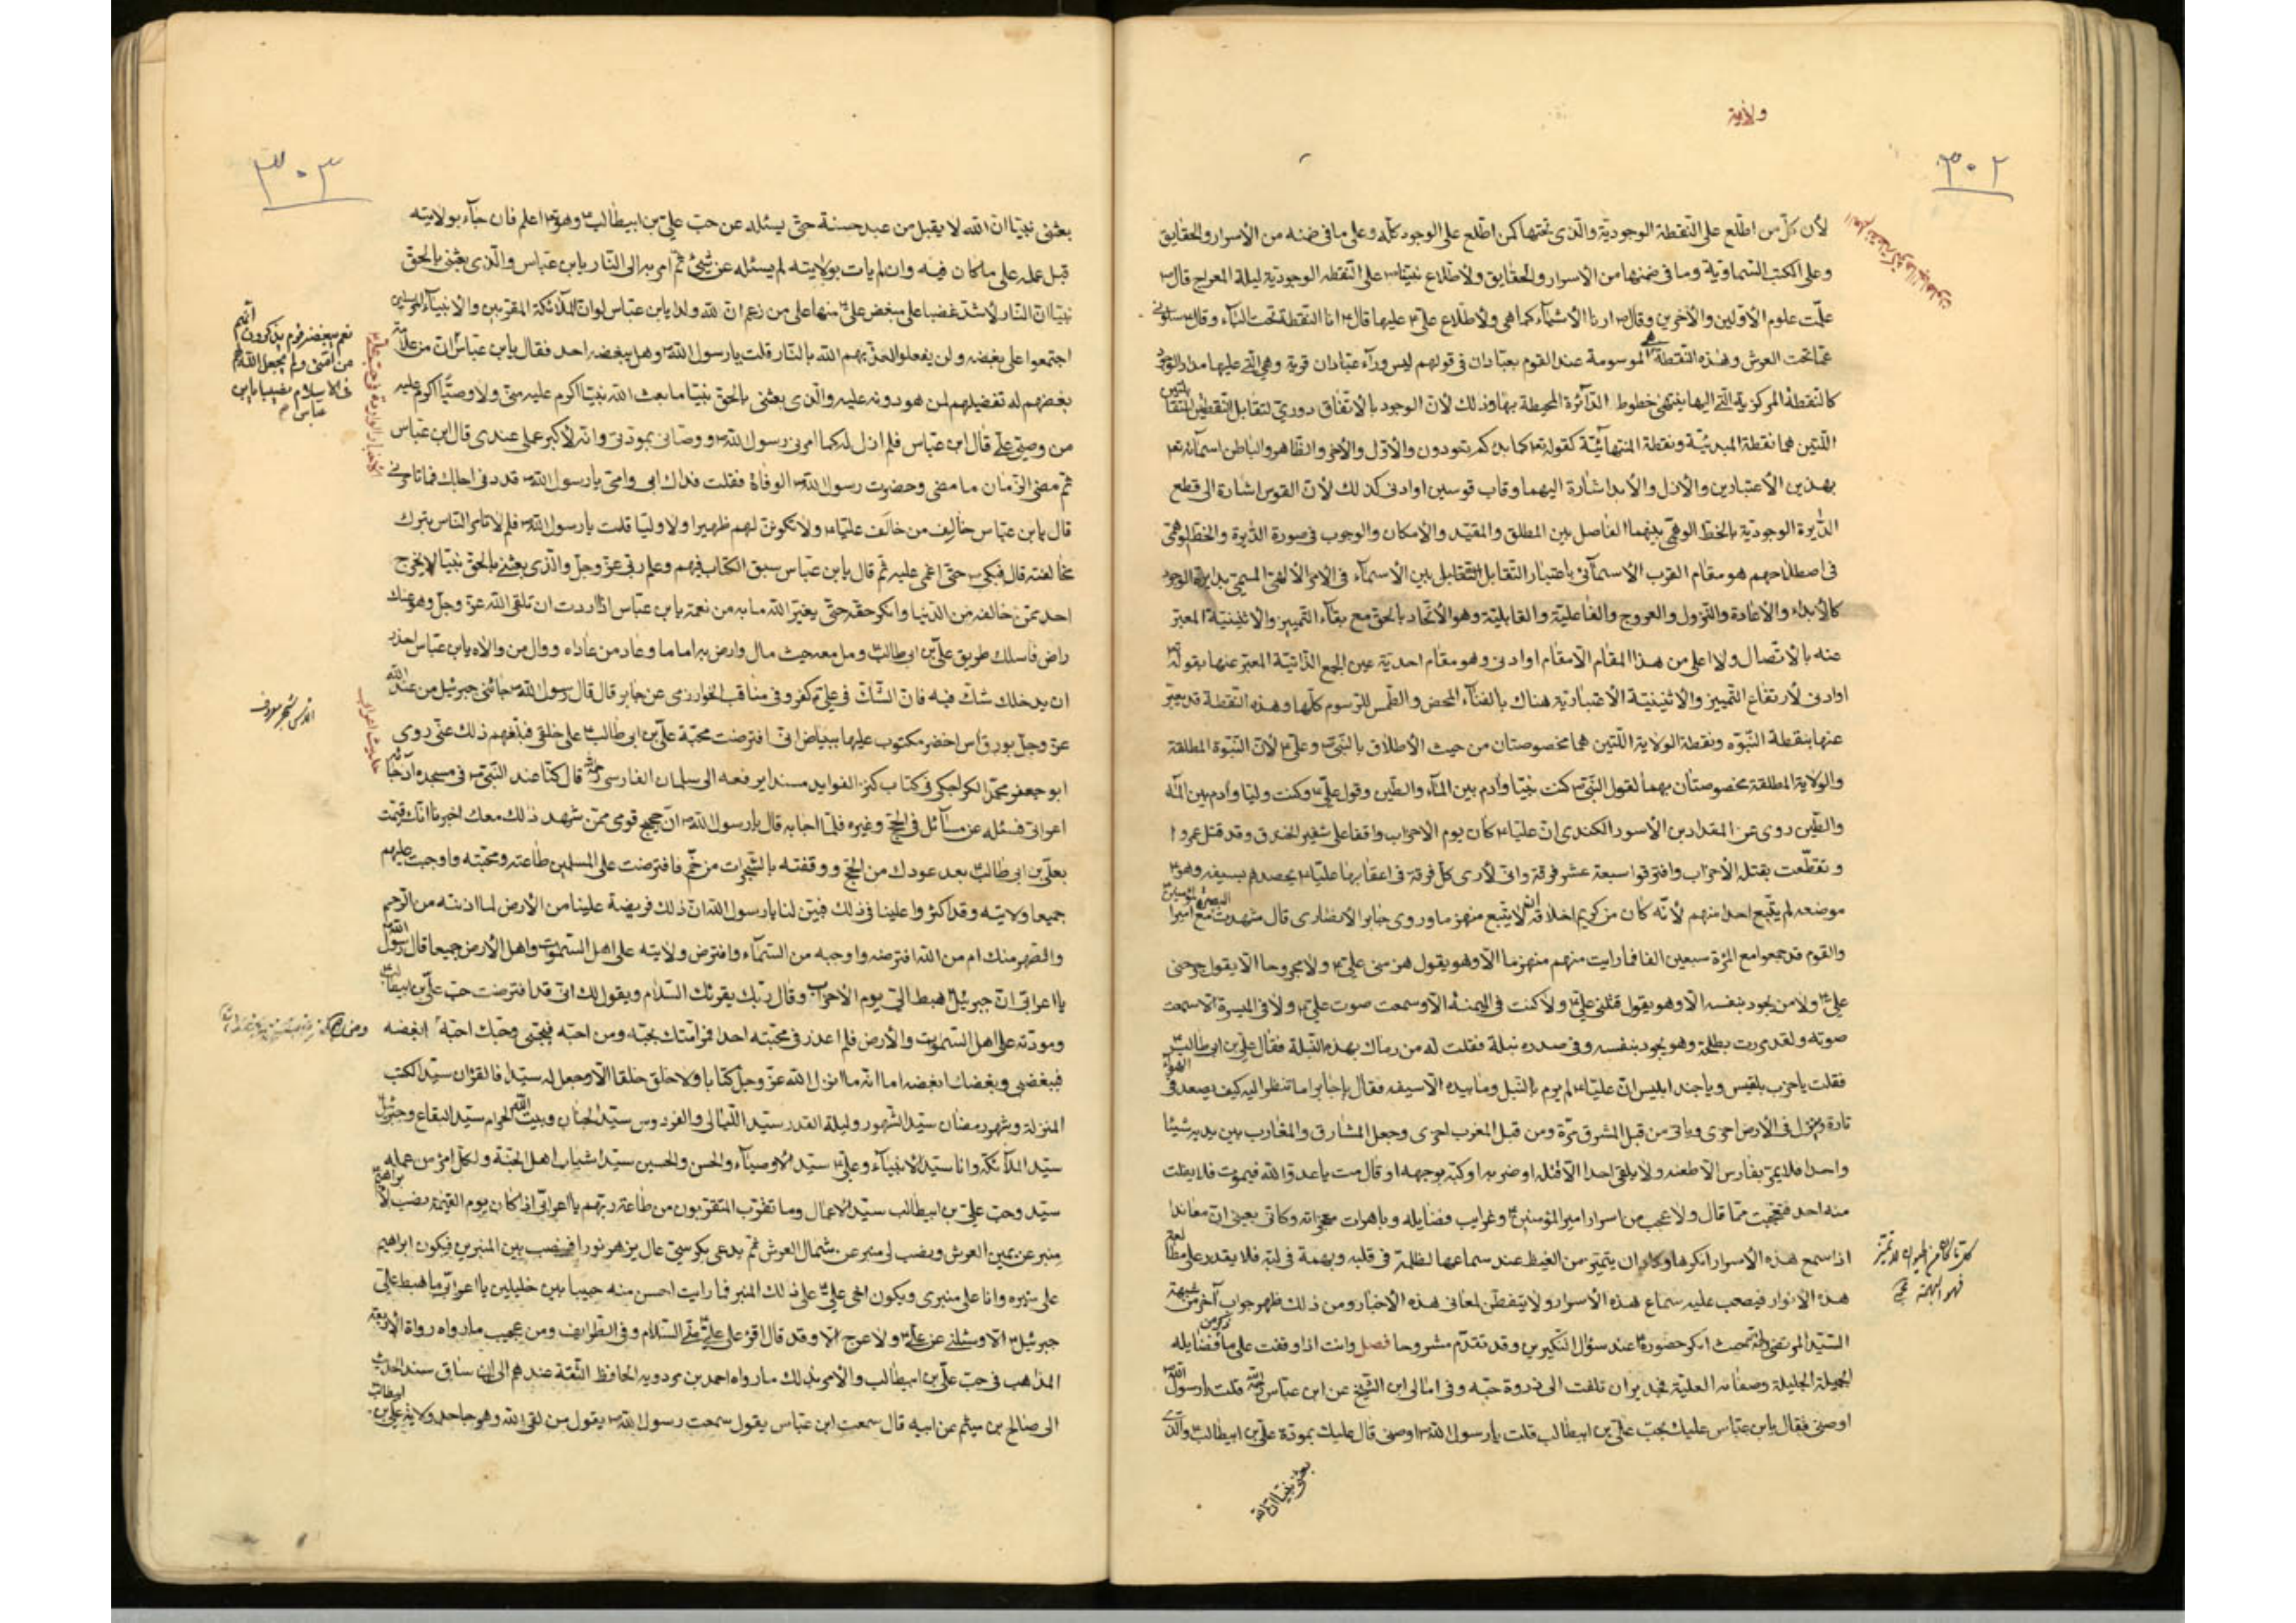 ولاية
٣٠٢
لأن كل من اطلع على النقطة الوجودية والذى تحتها كمن اطلع على الوجود كله وعلى ما فى ضمنه من الأسرار والحقايق
وعلى الكتب السماوية وما فى ضمنها من الاسرار والحقايق ولاطلاع نبينا ص على النقطه الوجودية ليلة المعراج قال ص
علمت علوم الأولين والأخرين وقال ص ارنا الأشياء كما هى ولاطلاع على ع عليها قال ع انا النقطة تحت الباء وقال ع سلونى
عما تحت العرش وهذه النقطة هى الموسومة عند القوم بعبادان فى قولهم ليس وراء عبادان قرية وهى التى عليها مدار الوجود
كالنقطة المركزية التى اليها ينتهى خطوط الدائرة المحيطة بها وذلك لأن الوجود بالاتفاق دورى لتقابل النقطتين
اللتين هما نقطة المبدئية ونقطة المنتهائية كقوله تع كما بدءكم تعودون والأول والأخر والظاهر والباطن اسمائه تع
بهذين الأعتبارين والازل والأبد اشارة اليهما وقاب قوسين او ادنى كذلك لأن القوس اشارة الى قطع
الدايرة الوجودية بالخط الوهمى بينهما الفاصل بين المطلق والمقيد والأمكان والوجوب فى صورة الدايرة والخط الوهمى
فى اصطلاحهم هو مقام القرب الأسمائى باعتبار التقابل بين الأسماء فى الامر الألهى المسمى بدايرة الوجود
كالأبداء والأعادة والنزول والعروج والفاعلية والقابلية وهو الأتحاد بالحق مع بقاء التمييز والأثنينية المعبر
عنه بالاتصال ولا اعلى من هذا المقام الا مقام او ادنى وهو مقام احدية عين الجمع الذاتية المعبر عنها بقوله تع
او ادنى لأرتفاع التمييز والاثنينية الأعتبارية هناك بالفناء المحض والطمس للرسوم كلها وهذه النقطة قد يعبر
عنها بنقطة النبوه ونقطة الولاية اللتين هما مخصوصتان من حيث الأطلاق بالنبى ص وعلى ع لأن النبوة المطلقة
والولاية المطلقة مخصوصتان بهما لقول النبى ص كنت نبيا وأدم بين الماء والطين وقول على ع وكنت وليا وأدم بين الماء
والطين روى عن المقداد بن الأسود الكندى ان عليا ع كان يوم الاحزاب واقفا على شفير الخندق وقد قتل عمروا
وتقطعت بقتله الأحزاب وافترقوا سبعة عشر فرقة وانى لأرى كل فرقة فى اعقابها عليا ع يحصدهم بسيفه وهو ع
موضعه لم يتبع احدا منهم لأنه كان من كريم اخلاقه انه لا يتبع منهزما وروى جابر الأنصارى قال شهدت البصرة مع امير المؤمنين ع
والقوم قد جمعوا مع المرئة سبعين الفا فما رايت منهم منهزما الا وهو يقول هزمنى على ع ولا مجروحا الا يقول جرحنى
على ع ولا من يجود بنفسه الا وهو يقول قتلنى على ع ولا كنت فى الميمنة الا وسمعت صوت على ع ولا فى الميسرة الا سمعت
صوته ولقد مررت بطلحة وهو يجود بنفسه وفى صدره نبلة فقلت له من رماك بهذه النبلة فقال على بن ابى طالب ع
فقلت يا حزب بلقيس ويا جند ابليس ان عليا ع لم يرم بالنبل وما بيده الا سيفه فقال يا جابر اما تنظر اليه كيف يصعد فى الهواء
تارة وينزل فى الأرض اخرى وياتى من قبل المشرق مرة ومن قبل المغرب اخرى وجعل المشارق والمغارب بين يديه شيئا
واحدا فلا يمر بفارس الا طعنه ولا يلقى احدا الا قتله او ضربه او كبه بوجهه او قال مت يا عدو الله فيموت فلا يفلت
منه احد فتعجبت مما قال ولا عجب من اسرار امير المؤمنين ع وغرايب فضايله وباهرات معجزاته وكانى بعينى ان معاندا
اذا سمع هذه الأسرار انكرها وكاد ان يتميز من الغيظ عند سماعها لظلمة فى قلبه وبهمة فى لبه فلا يقدر على مطالعة
هذه الانوار فيصعب عليه سماع هذه الأسرار ولا يتفطن لمعانى هذه الأخبار ومن ذلك ظهر جواب آخر من شبهة
السيد المرتضى حيث انكر حضوره ع عند سؤال النكيرين وقد تقدم مشروحا فصل وانت اذا وقفت على ما ذكر من فضايله
الجميلة الجليلة وصفاته العلية فجدير ان تلفت الى ذروة حبه وفى امالى ابن الشيخ عن ابن عباس قلت يا رسول الله ص
اوصنى فقال يا بن عباس عليك بحب على بن ابيطالب قلت يا رسول الله ص اوصنى قال عليك بمودة على بن ابيطالب ع والذى
بعثنى نبيا ان الله
٣٠٣
بعثنى نبيا ان الله لا يقبل من عبد حسنة حتى يسئله عن حب على بن ابيطالب ع وهو تع اعلم فان جآء بولايته
قبل عمله على ما كان فيه وان لم يات بولايته لم يسئله عن شيئ ثم امر به الى النار يا بن عباس والذى بعثنى بالحق
نبيا ان النار لأشد غضبا على مبغض على ع منها على من زعم ان لله ولدا يا بن عباس لو ان الملائكة المقربين والانبياء المرسلين
اجتمعوا على بغضه ولن يفعلوا لعذبهم الله بالنار قلت يا رسول الله ص وهل يبغضه احد فقال يا بن عباس ان من علامة
بغضهم له تفضيلهم من هو دونه عليه والذى بعثنى بالحق نبيا ما بعث الله نبيا اكرم عليه منى ولا وصيا اكرم عليه
من وصيى على قال ابن عباس فلم ازل له كما امرنى رسول الله ص ووصانى بمودته وانه لأكبر عملى عندى قال ابن عباس
ثم مضى الزمان ما مضى وحضرت رسول الله ص الوفاة فقلت فداك ابى وامى يا رسول الله ص قد دنى اجلك فما تامرنى
قال يا بن عباس خالف من خالف عليا ع ولا تكونن لهم ظهيرا ولا وليا قلت يا رسول الله ص فلم لا تامر الناس بترك
مخالفته قال فبكى ص حتى اغمى عليه ثم قال يا بن عباس سبق الكتاب فيهم وعلم ربى عز وجل والذى بعثنى بالحق نبيا لا يخرج
احد ممن خالفه من الدنيا وانكر حقه حتى يغير الله ما به من نعمة يا بن عباس اذا اردت ان تلقى الله عز وجل وهو عنك
راض فاسلك طريق على بن ابى طالب ع ومل معه حيث مال وارض به اماما وعاد من عاداه ووال من والاه يا بن عباس احذر
ان يدخلك شك فيه فان الشك فى على ع كفر وفى مناقب الخوارزمى عن جابر قال قال رسول الله ص جائنى جبرئيل من عند الله
عز وجل بورق آس اخضر مكتوب عليها ببياض انى افترضت محبة على بن ابى طالب ع على خلقى فبلغهم ذلك عنى روى
ابو جعفر محمد الكراجكى فى كتاب كنز الفوايد مسندا يرفعه الى سلمان الفارسى قال كنا عند النبى ص فى مسجده اذ جائه
اعرابى فسئله عن مسائل فى الحج وغيره فلما اجابه قال يا رسول الله ص ان حجيج قومى ممن شهد ذلك معك اخبرنا انك قمت
بعلى بن ابى طالب ع بعد عودك من الحج ووقفته بالشجرات من خم فافترضت على المسلمين طاعته ومحبته واوجبت عليهم
جميعا ولايته وقد اكثروا علينا فى ذلك فبين لنا يا رسول الله ان ذلك فريضة علينا من الأرض لما ادنته من الرحم
والصهر منك ام من الله افترضه واوجبه من السماء وافترض ولايته على اهل السموات واهل الأرض جميعا قال رسول الله ص
يا اعرابى ان جبرئيل هبط الى يوم الاحزاب وقال ربك يقرئك السلام ويقول لك انى قد افترضت حب على بن ابيطالب ع
ومودته على اهل السموات والأرض فلم اعذر فى محبته احدا فمر امتك بحبه ومن احبه فبحبى وحبك احبه ومن ابغضه
فببغضى وبغضك ابغضه اما انه ما انزل الله عز وجل كتابا ولا خلق خلقا الا وجعل له سيدا فالقرآن سيد الكتب
المنزلة وشهر رمضان سيد الشهور وليلة القدر سيد الليالى والفردوس سيد الجنان وبيت الله الحرام سيد البقاع وجبرئيل
سيد الملائكة وانا سيد الانبياء وعلى ع سيد الأوصياء والحسن والحسين سيدا شباب اهل الجنة ولكل امرء من عمله
سيد وحب على بن ابيطالب سيد الاعمال وما تقرب المتقربون من طاعة ربهم يا اعرابى اذا كان يوم القيمة نصب لأبراهيم
منبر عن يمين العرش ونصب لى منبر عن شمال العرش ثم يدعى بكرسى عال يزهر نورا فينصب بين المنبرين فيكون ابراهيم
على منبره وانا على منبرى ويكون اخى على ع على ذلك المنبر فما رايت احسن منه حبيبا بين خليلين يا اعرابى ما هبط على
جبرئيل ع الا وسئلنى عن على ع ولا عرج الا وقد قال اقرء على على ع منى السلام وفى الطرايف ومن عجيب ما رواه رواة الأربعة
المذاهب فى حب على بن ابيطالب والأمر بذلك ما رواه احمد بن مردويه الحافظ الثقة عندهم الى ان ساق سند الحديث
الى صالح بن ميثم عن ابيه قال سمعت ابن عباس يقول سمعت رسول الله ص يقول من لقى الله وهو جاحد ولاية على بن ابيطالب
نعم يبغضه قوم يذكرون انهم
من امتى ولم يجعل الله لهم
فى الاسلام نصيبا يا بن
عباس